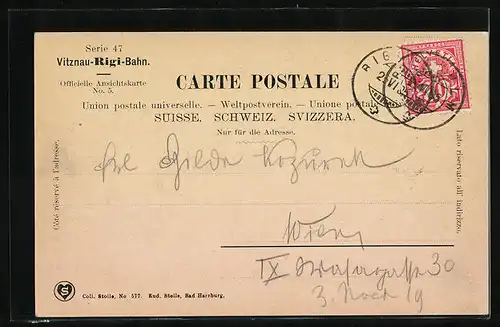 Serie 47
Vitznau-Rigi-Bahn.
Officielle Ansichtskarte
No. 5.
CARTE POSTALE
Union postale universelle. — Weltpostverein. — Unione postale
SUISSE. SCHWEIZ. SVIZZERA.
Nur für die Adresse.
Côté réservé à l'adresse.
Lato riservato all' indirizzo.
RIGI
10
Frl Hilde
Wien
IX 30
3. 19
S
Coll. Stolle, No 577. Rud. Stolle, Bad Harzburg.